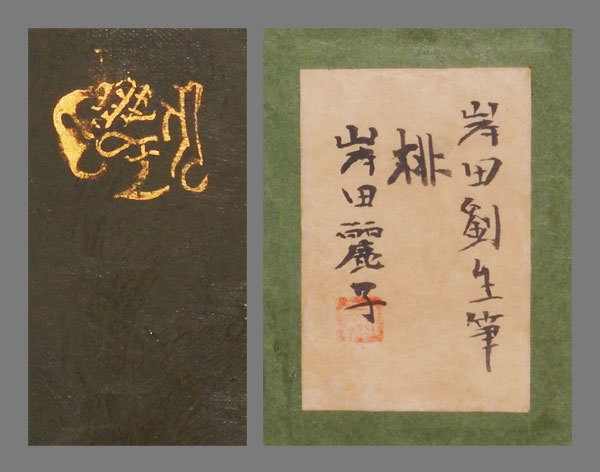 岸田劉生筆
桃
岸田麗子